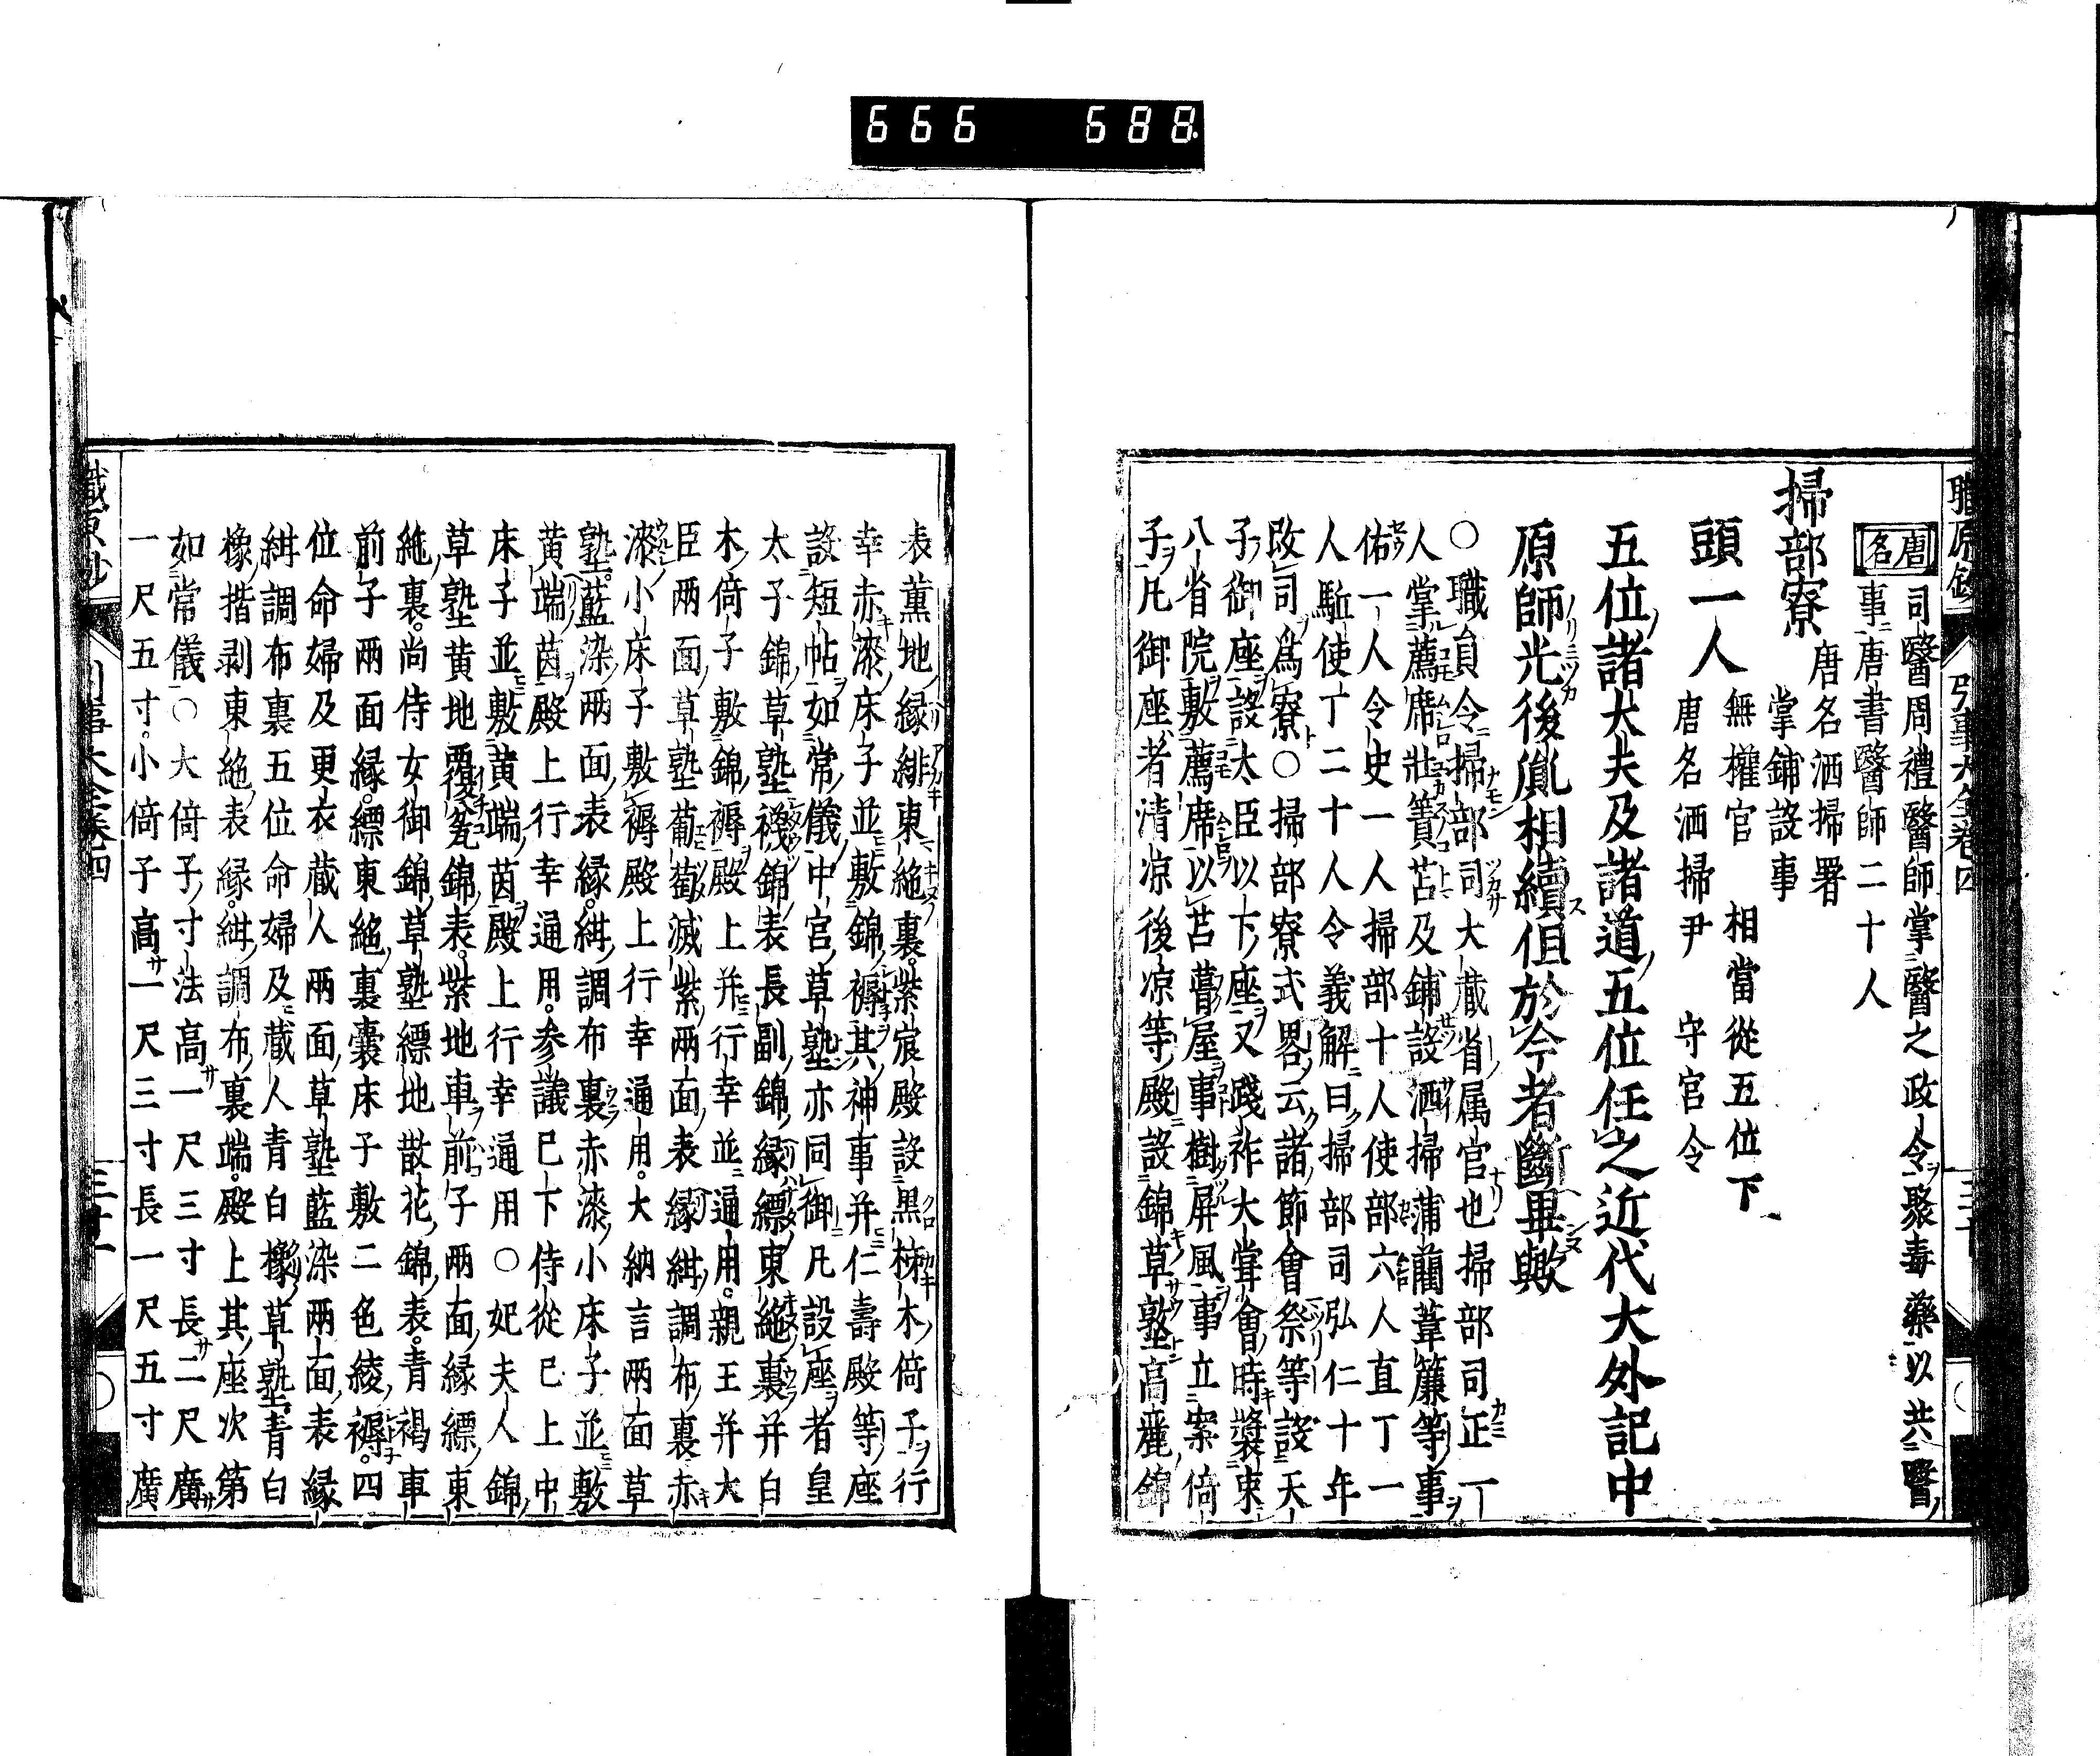 666 688
職原鈔 引事大全卷四
唐名
司醫周禮醫師掌醫之政令聚毒藥以共醫
事唐書醫師二十人
掃部寮
唐名洒掃署
掌鋪設事
頭一人
無權官 相當從五位下
唐名洒掃尹 守宮令
五位諸大夫及諸道五位任之近代大外記中
原師光後胤相續但於今者斷畢歟
○職員令掃部司大蔵省属官也掃部司正一
人掌薦席牀簀苫及鋪設洒掃蒲藺葦簾等事
佑一人令史一人掃部十人使部六人直丁一
人駈使丁二十人令義解曰掃部司弘仁十年
改司爲寮○掃部寮式畧云諸節會祭等設天
子御座設太臣以下座又踐祚大甞會時裝束
八省院敷薦席以苫葺屋事樹屏風事立案倚
子凡御座者清凉後凉等殿設錦草墪高麗錦
表薫地縁緋東絁裏紫宸殿設黒柿木倚子行
幸赤漆床子並敷錦褥其神事并仁壽殿等座
設短帖如常儀中宮草墪亦同御凡設座者皇
太子錦草墪襪錦表長副錦縁縹東絁裏并白
木倚子敷錦褥殿上并行幸並通用親王并大
臣兩面草墪葡萄滅紫兩面表縁紺調布裏赤
漆小床子敷褥殿上行幸通用大納言兩面草
墪藍染兩面表縁紺調布裏赤漆小床子並敷
黄端茵殿上行幸通用参議已下侍從已上中
床子並敷黄端茵殿上行幸通用○妃夫人錦
草墪黄地覆瓮錦表紫地車前子兩面縁縹東
絁裏尚侍女御錦草墪縹地散花錦表青褐車
前子兩面縁縹東絁裏囊床子敷二色綾褥四
位命婦及更衣蔵人兩面草墪藍染兩面表縁
紺調布裏五位命婦及蔵人青白橡草墪青白
橡揩剥東絁表縁紺調布裏端殿上其座次第
如常儀○大倚子寸法高一尺三寸長二尺廣
一尺五寸小倚子高一尺三寸長一尺五寸廣